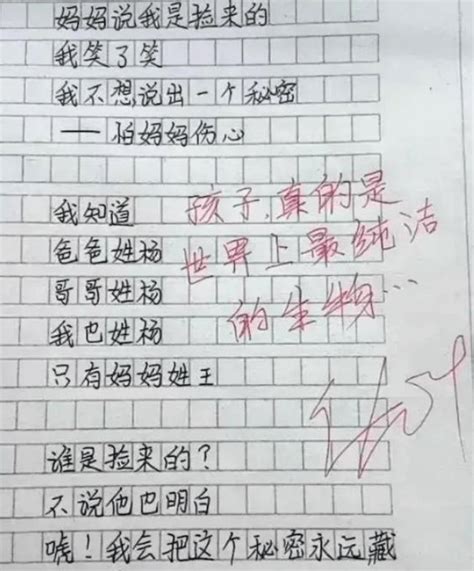 妈妈说我是捡来的
我笑了笑
我不想说出一个秘密
——怕妈妈伤心
我知道
爸爸姓杨
哥哥姓杨
我也姓杨
只有妈妈姓王
孩子，真的是
世界上最纯洁
的生物…
谁是捡来的？
不说他也明白
唬！我会把这个秘密永远藏